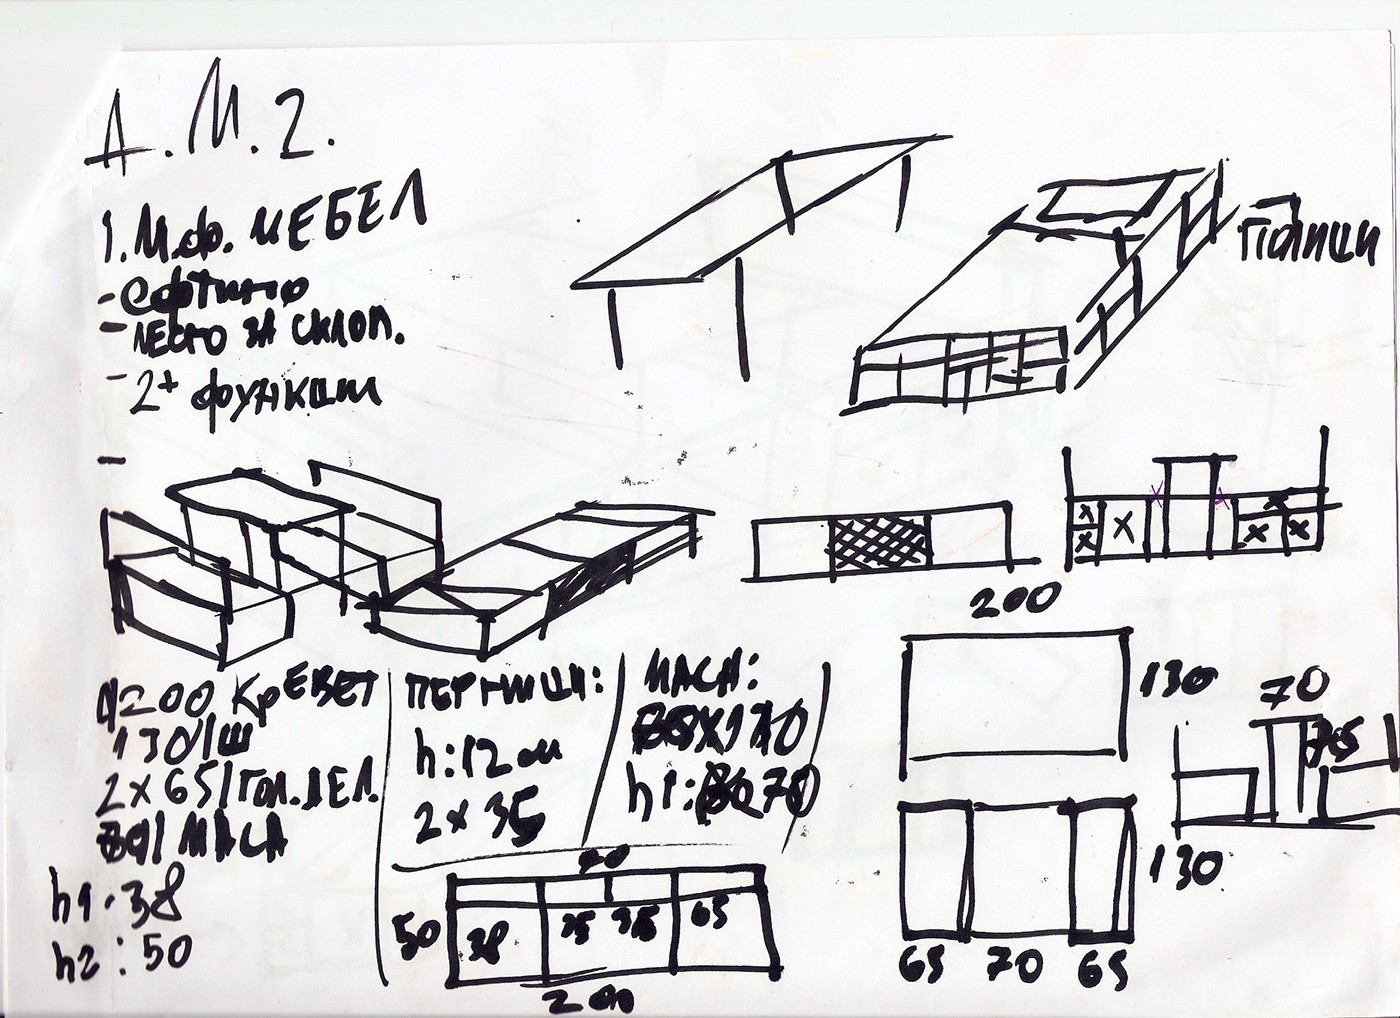 А.М.2.
1. М.ф. МЕБЕЛ
- ефтино
- место за склоп.
- 2+ функции
-
Полици
200
д200 КрЕВЕТ
130/ш
2x65/гол.дел.
70/МАСА
h1:38
h2:50
ПЕРНИЦИ:
h:12см
2x35
МАСА:
h1: 70
70
50
38
35
35
65
200
130
130
65 70 65
70